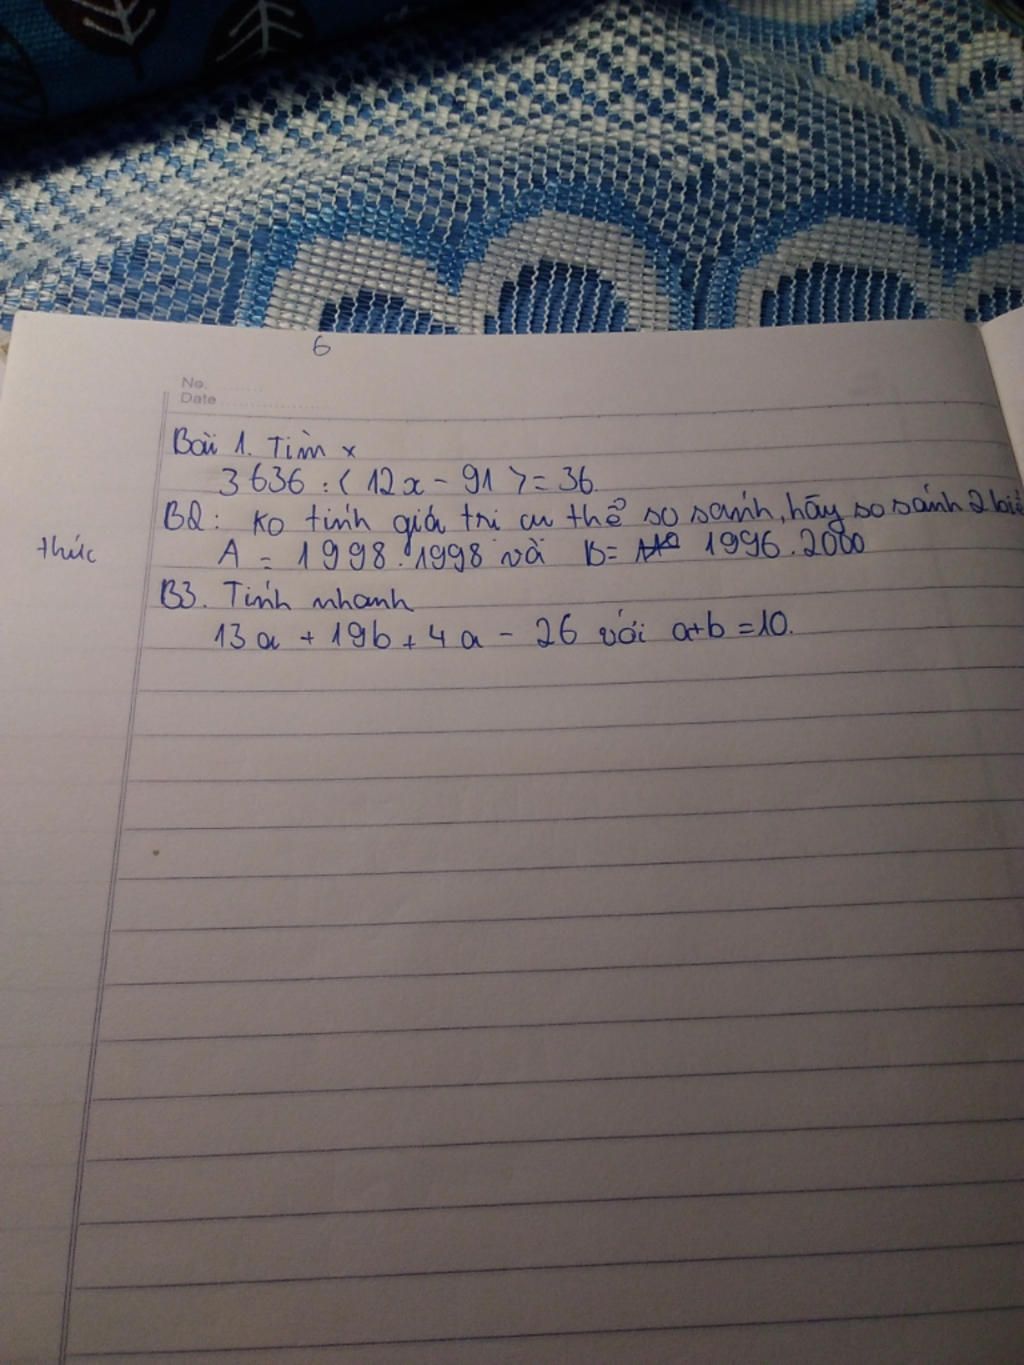 6
No. ........
Date ....................
Bài 1. Tìm x
3636 : ( 12x - 91 ) = 36.
B2: Ko tính giá trị cụ thể so sánh, hãy so sánh 2 biể
thức A = 1998.1998 và B= 1996.2000
B3. Tính nhanh
13a + 19b + 4a - 26 với a+b =10.